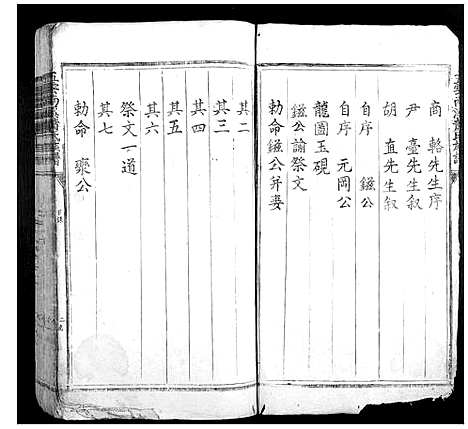 商　輅先生序
尹　臺先生叙
胡　直先生叙
自序　鎡公
自序　元岡公
龍圖玉硯
鎡公諭祭文
勅命鎡公并妻
其二
其三
其四
其五
其六
祭文一道
其七
勅命　聚公